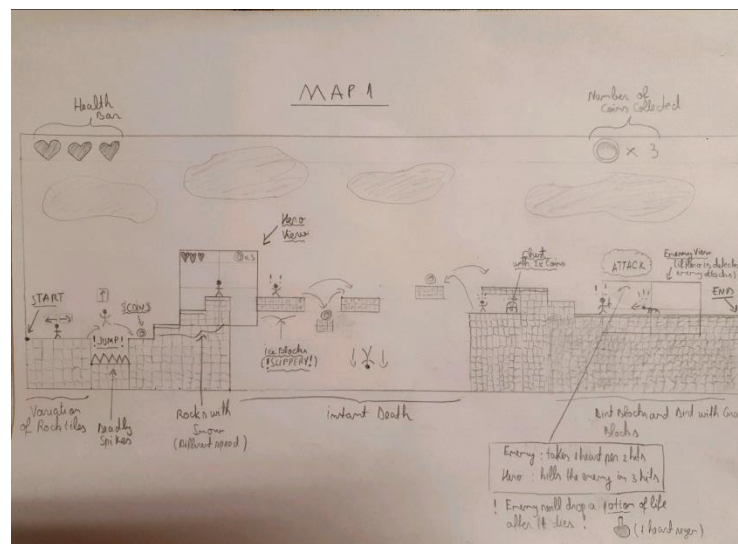 MAP 1
Health
Bar
Number of
Coins Collected
× 3
Hero
View
×3
START
!JUMP!
Ice Blocks
(!SLIPPERY!)
Chest
with 3x Coins
ATTACK
Enemy View
enemy attacks)
END
Variation
of Rock tiles
Deadly
Spikes
Rocks with
Snow
(Different speed)
instant Death
Blocks and
Blocks
Enemy : takes 1 heart per 2 hits
Hero : kills the enemy in 3 hits
! Enemy will drop a potion of life
after it dies !
(1 heart regen)